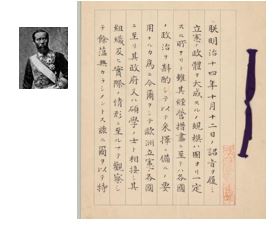 朕明治十四年十月十二日ノ詔旨ヲ履ミ
立憲ノ政體ヲ大成スルノ規模ハ固ヨリ一定
スル所アリト雖其經營措畫ニ至テハ各國
ノ政治ヲ斟酌シテ以テ采擇ニ備フルノ要
用ナルカ為ニ今爾ヲシテ歐洲立憲ノ各國
ニ至リ其政府又ハ碩學ノ士ト相接シ其
組織及ヒ實際ノ情形ニ至ルマテ觀察シ
テ餘蘊無カラシメントス茲ニ爾ヲ以テ特